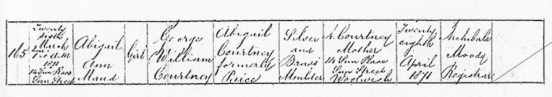 165
Twenty
eighth
March
1871
14 Sun Place
Sun Street
Abigail
Ann
Maud
Girl
George
William
Courtney
Abigail
Courtney
formerly
Peirce
Silver
and
Brass
Moulder
A. Courtney
Mother
14 Sun Place
Sun Street
Woolwich
Twenty
eighth
April
1871
Archibald
Moody
Registrar